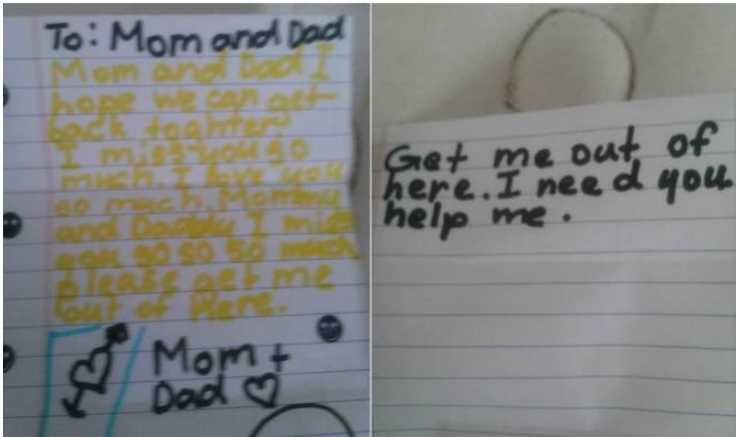 To: Mom and Dad
Mom and Dad I
hope we can get
back toghter!
I miss you so
much. I love you
so much. Mommy
and Daddy I miss
you so so so much
please get me
out of Here.
Mom +
Dad
Get me out of
here. I need you
help me.